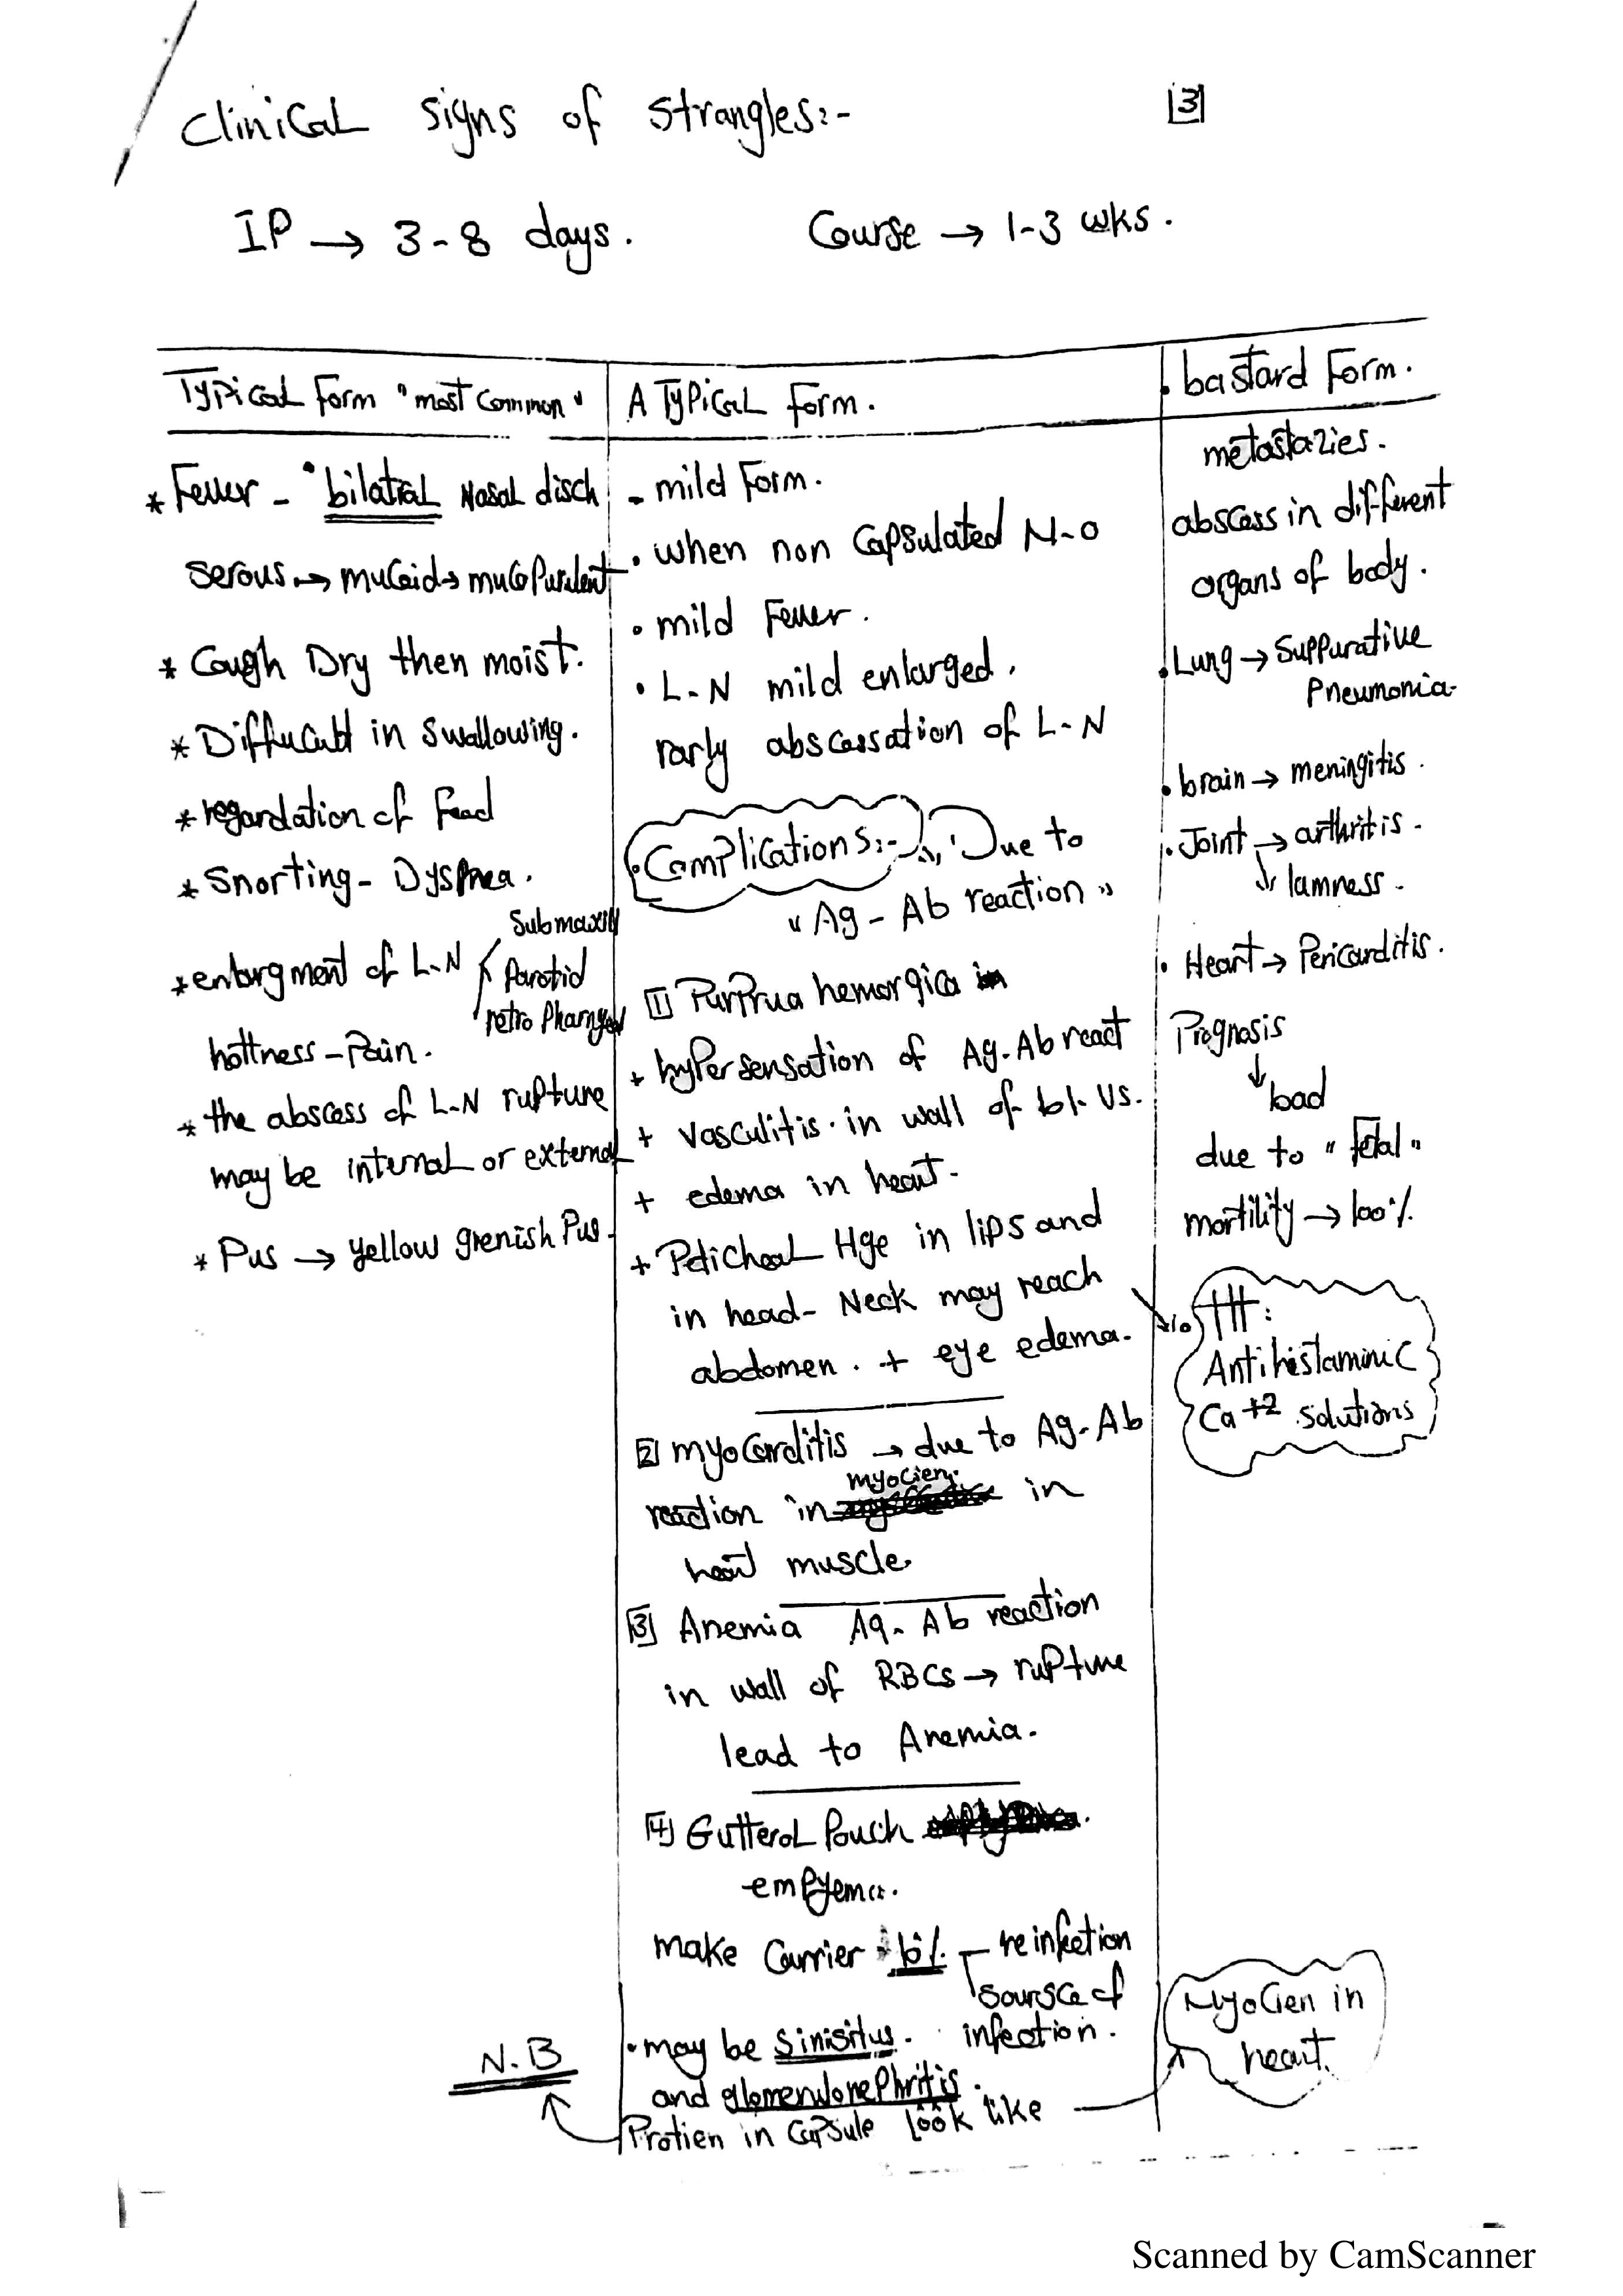 Clinical signs of strangles:-
[3]
IP → 3-8 days.
Course → 1-3 wks.
Typical Form "most common"
* Fever - "bilatral Nasal disch
serous → mucoid → mucopurulent
* Cough Dry then moist.
* Difficult in swallowing.
* regardation of Food
* Snorting - Dyspnea.
* enlargment of L-N
Submaxill
Parotid
retro pharngeal
hottness - Pain.
* the abscess of L-N rupture
may be internal or external
* Pus → yellow grenish Pus.
ATypical Form.
- mild Form.
• when non Capsulated M-O
• mild Fever.
• L-N mild enlarged.
rarly abscessation of L-N
• Complications:- "Due to
"Ag - Ab reaction"
[1] Purprua hemorgica in
+ hypersensation of Ag-Ab react
+ vasculitis in wall of bl. vs.
+ edema in heart.
+ Peticheal Hge in lips and
in head - Neck may reach
abdomen. + eye edema.
[2] myocarditis → due to Ag-Ab
myocien
reaction in in
heart muscle
[3] Anemia Ag-Ab reaction
in wall of RBCs → rupture
lead to Anemia.
[4] Gutteral Pouch
empyema.
make Carrier 10% reinfection
soursce of
infection.
• may be sinisitus.
and glomerulonephritis.
N.B
Protien in capsule look like
Myocien in
heart.
• bastard Form.
metastazies.
abscess in different
organs of body.
• Lung → Suppurative
Pneumonia.
• brain → meningitis.
• Joint → arthritis.
↓ lamness.
• Heart → Pericarditis.
Prognosis
↓ bad
due to "Fetal"
mortility → 100%
ttt:
Antihistaminic
Ca+2 solutions
Scanned by CamScanner